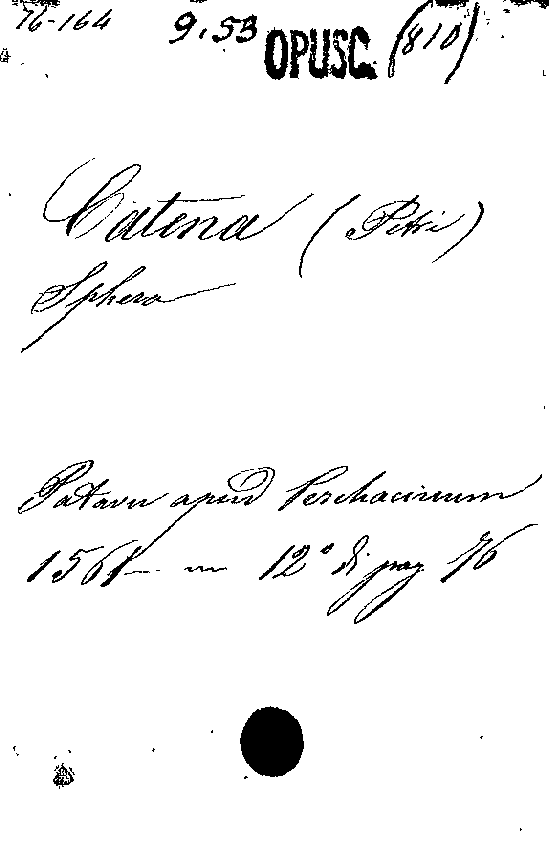 76-164 9.53 OPUSC. (810)
Catena (Petri)
Sphera
Patavii apud Perchacinum
1561 in 12° di pag 76